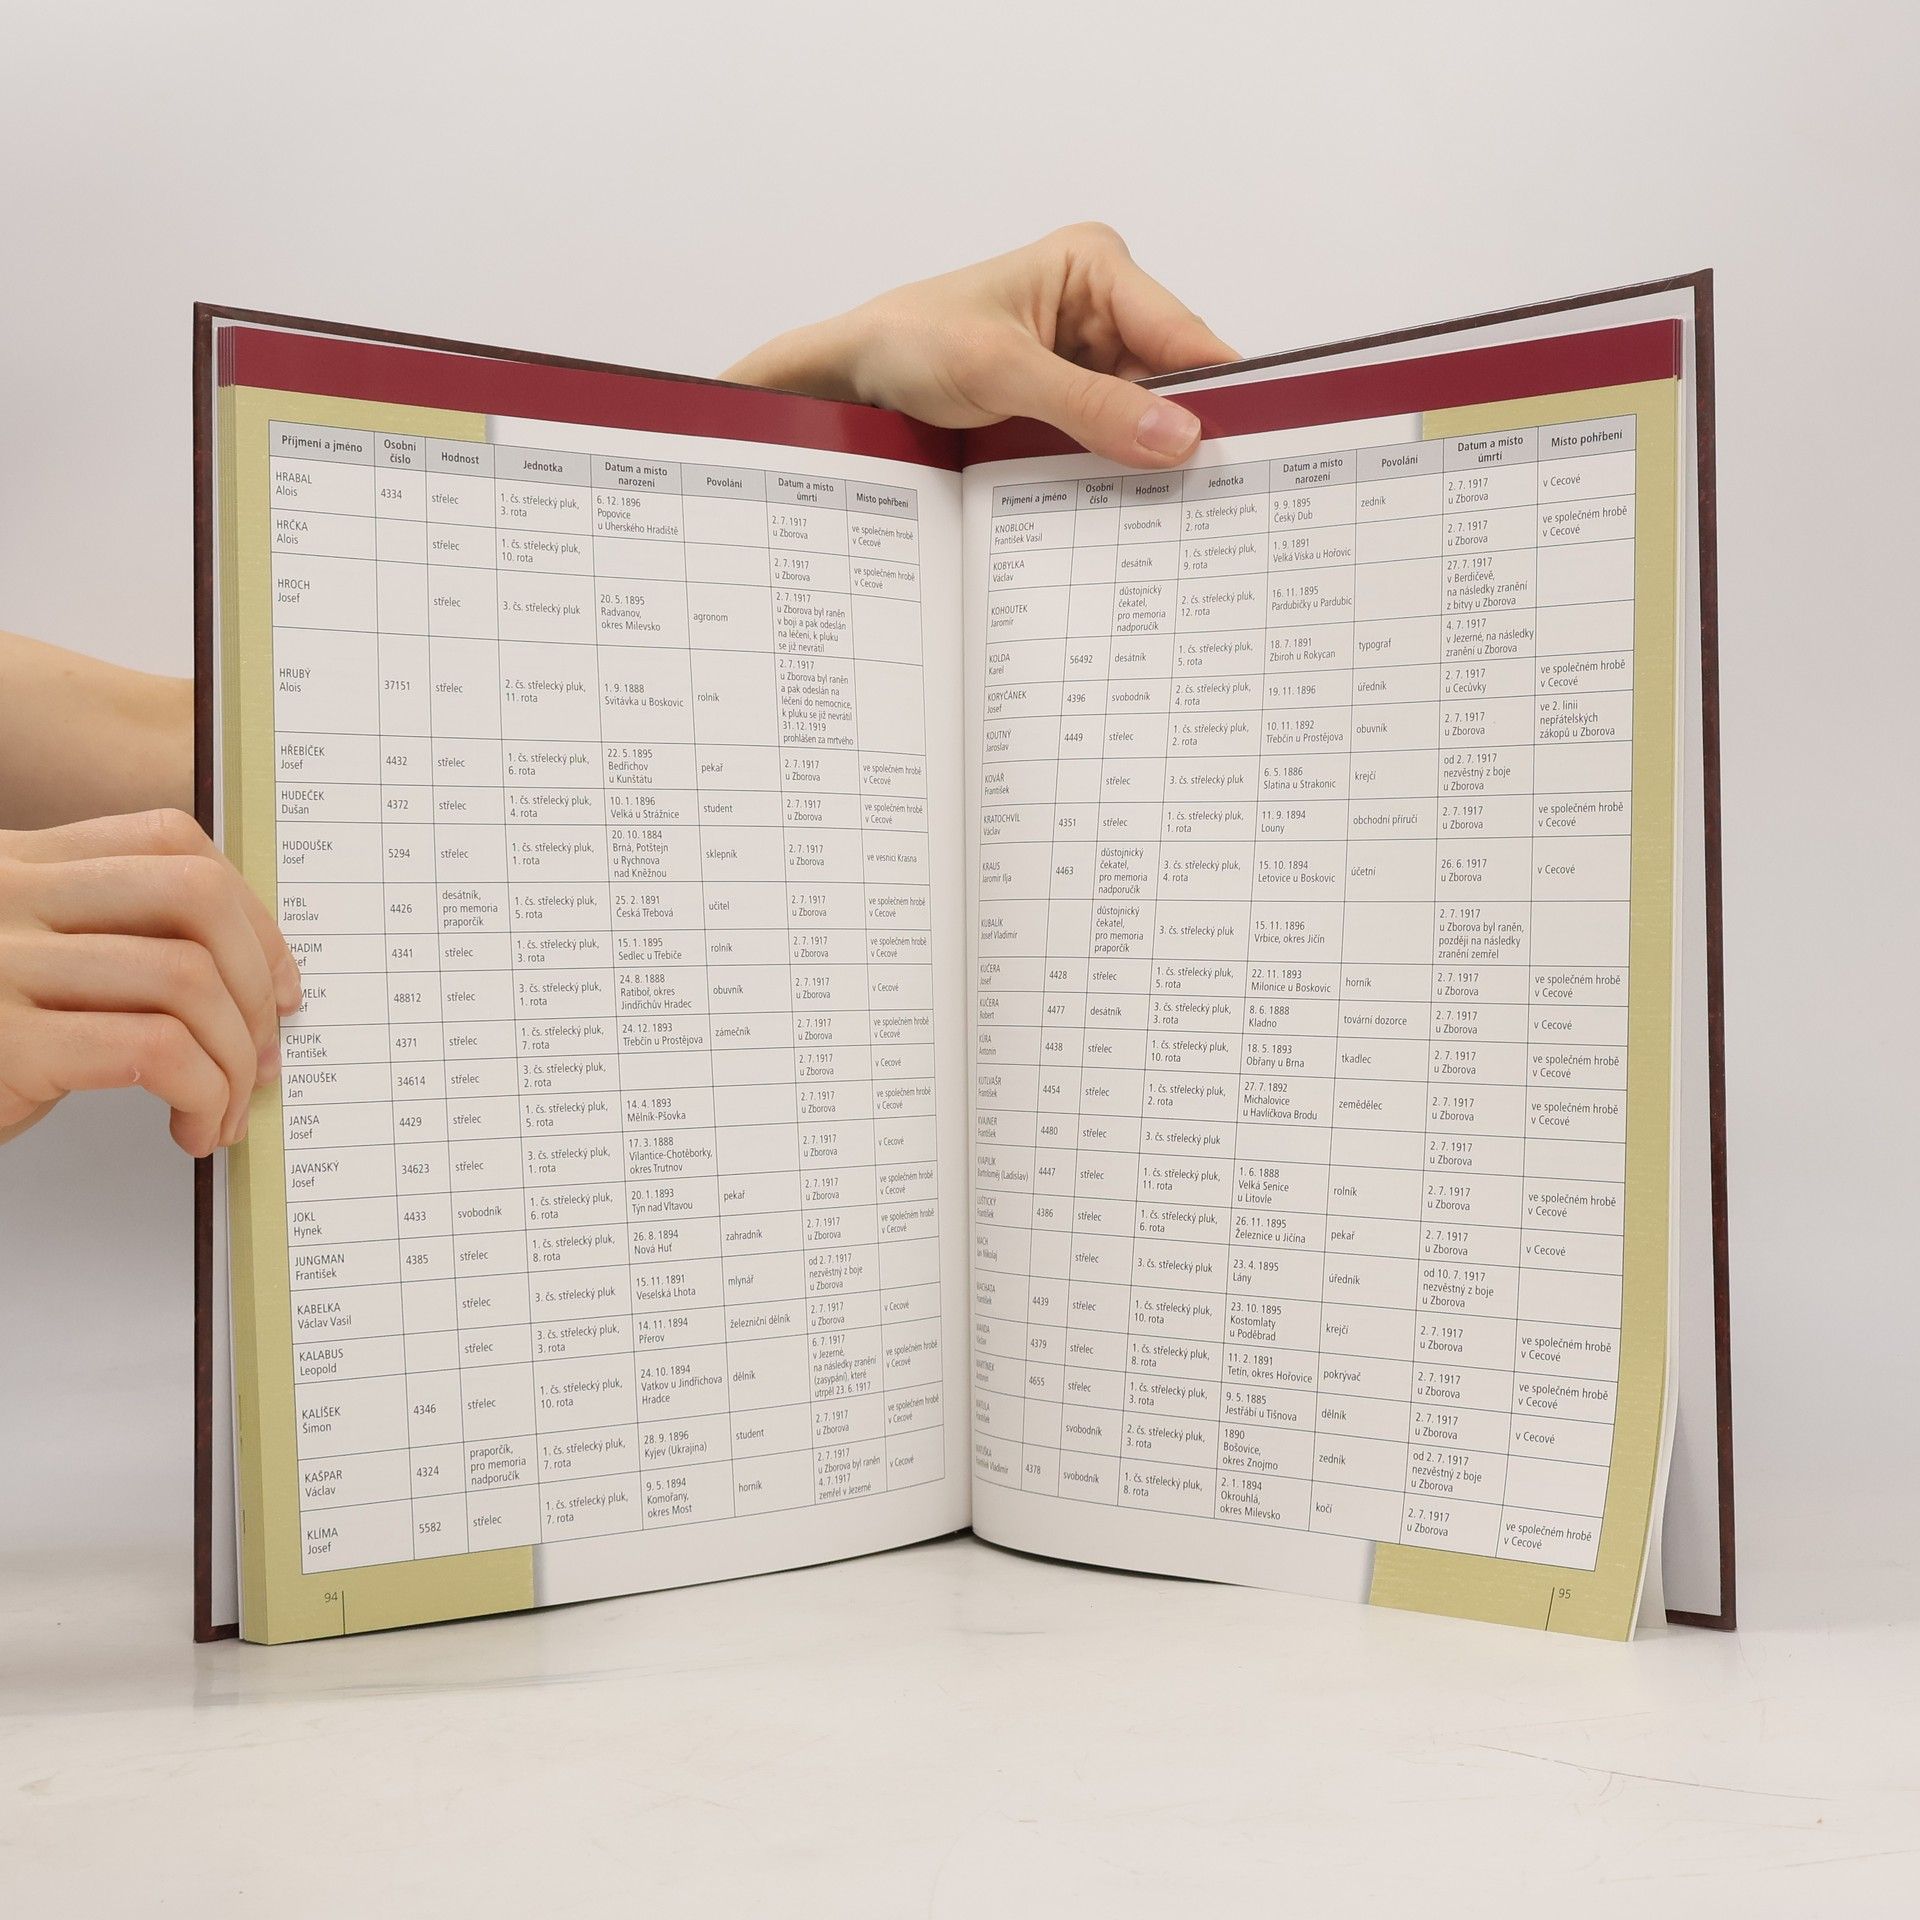 Příjmení a jméno Osobní číslo Hodnost Jednotka Datum a místo narození Povolání Datum a místo úmrtí Místo pohřbení
HRABAL Alois 4334 střelec 1. čs. střelecký pluk, 3. rota 6. 12. 1896 Popovice u Uherského Hradiště 2. 7. 1917 u Zborova ve společném hrobě v Cecové
HRČKA Alois střelec 1. čs. střelecký pluk, 10. rota 2. 7. 1917 u Zborova ve společném hrobě v Cecové
HROCH Josef střelec 3. čs. střelecký pluk 20. 5. 1895 Radvanov, okres Milevsko agronom 2. 7. 1917 u Zborova byl raněn v boji a pak odeslán na léčení, k pluku se již nevrátil
HRUBÝ Alois 37151 střelec 2. čs. střelecký pluk, 11. rota 1. 9. 1888 Svitávka u Boskovic rolník 2. 7. 1917 u Zborova byl raněn a pak odeslán na léčení do nemocnice, k pluku se již nevrátil 31. 12. 1919 prohlášen za mrtvého
HŘEBÍČEK Josef 4432 střelec 1. čs. střelecký pluk, 6. rota 22. 5. 1895 Bedřichov u Kunštátu pekař 2. 7. 1917 u Zborova ve společném hrobě v Cecové
HUDEČEK Dušan 4372 střelec 1. čs. střelecký pluk, 4. rota 10. 1. 1896 Velká u Strážnice student 2. 7. 1917 u Zborova ve společném hrobě v Cecové
HUDOUŠEK Josef 5294 střelec 1. čs. střelecký pluk, 1. rota 20. 10. 1884 Brná, Potštejn u Rychnova nad Kněžnou sklepník 2. 7. 1917 u Zborova ve vesnici Krasna
HÝBL Jaroslav 4426 desátník, pro memoria praporčík 1. čs. střelecký pluk, 5. rota 25. 2. 1891 Česká Třebová učitel 2. 7. 1917 u Zborova ve společném hrobě v Cecové
HADIM ef 4341 střelec 1. čs. střelecký pluk, 3. rota 15. 1. 1895 Sedlec u Třebíče rolník 2. 7. 1917 u Zborova ve společném hrobě v Cecové
MELÍK ef 48812 střelec 3. čs. střelecký pluk, 1. rota 24. 8. 1888 Ratiboř, okres Jindřichův Hradec obuvník 2. 7. 1917 u Zborova v Cecové
CHUPÍK František 4371 střelec 1. čs. střelecký pluk, 7. rota 24. 12. 1893 Třebčín u Prostějova zámečník 2. 7. 1917 u Zborova ve společném hrobě v Cecové
JANOUŠEK Jan 34614 střelec 3. čs. střelecký pluk, 2. rota 2. 7. 1917 u Zborova v Cecové
JANSA Josef 4429 střelec 1. čs. střelecký pluk, 5. rota 14. 4. 1893 Mělník-Pšovka 2. 7. 1917 u Zborova ve společném hrobě v Cecové
JAVANSKÝ Josef 34623 střelec 3. čs. střelecký pluk, 1. rota 17. 3. 1888 Vilantice-Chotěborky, okres Trutnov 2. 7. 1917 u Zborova v Cecové
JOKL Hynek 4433 svobodník 1. čs. střelecký pluk, 6. rota 20. 1. 1893 Týn nad Vltavou pekař 2. 7. 1917 u Zborova ve společném hrobě v Cecové
JUNGMAN František 4385 střelec 1. čs. střelecký pluk, 8. rota 26. 8. 1894 Nová Huť zahradník 2. 7. 1917 u Zborova ve společném hrobě v Cecové
KABELKA Václav Vasil střelec 3. čs. střelecký pluk 15. 11. 1891 Veselská Lhota mlynář od 2. 7. 1917 nezvěstný z boje u Zborova
KALABUS Leopold střelec 3. čs. střelecký pluk, 3. rota 14. 11. 1894 Přerov železniční dělník 2. 7. 1917 u Zborova v Cecové
KALÍŠEK Šimon 4346 střelec 1. čs. střelecký pluk, 10. rota 24. 10. 1894 Vatkov u Jindřichova Hradce dělník 6. 7. 1917 v Jezerné, na následky zranění (zasypání), které utrpěl 23. 6. 1917 ve společném hrobě v Cecové
KAŠPAR Václav 4324 praporčík, pro memoria nadporučík 1. čs. střelecký pluk, 7. rota 28. 9. 1896 Kyjev (Ukrajina) student 2. 7. 1917 u Zborova ve společném hrobě v Cecové
KLÍMA Josef 5582 střelec 1. čs. střelecký pluk, 7. rota 9. 5. 1894 Komořany, okres Most horník 2. 7. 1917 u Zborova byl raněn 4. 7. 1917 zemřel v Jezerné v Cecové
94
Příjmení a jméno Osobní číslo Hodnost Jednotka Datum a místo narození Povolání Datum a místo úmrtí Místo pohřbení
KNOBLOCH František Vasil svobodník 3. čs. střelecký pluk, 2. rota 9. 9. 1895 Český Dub zedník 2. 7. 1917 u Zborova v Cecové
KOBYLKA Václav desátník 1. čs. střelecký pluk, 9. rota 1. 9. 1891 Velká Víska u Hořovic 2. 7. 1917 u Zborova ve společném hrobě v Cecové
KOHOUTEK Jaromír důstojnický čekatel, pro memoria nadporučík 2. čs. střelecký pluk, 12. rota 16. 11. 1895 Pardubičky u Pardubic 27. 7. 1917 v Berdičevě, na následky zranění z bitvy u Zborova
KOLDA Karel 56492 desátník 1. čs. střelecký pluk, 5. rota 18. 7. 1891 Zbiroh u Rokycan typograf 4. 7. 1917 v Jezerné, na následky zranění u Zborova
KORYČÁNEK Josef 4396 svobodník 2. čs. střelecký pluk, 4. rota 19. 11. 1896 úředník 2. 7. 1917 u Cecůvky ve společném hrobě v Cecové
KOUTNÝ Jaroslav 4449 střelec 1. čs. střelecký pluk, 2. rota 10. 11. 1892 Třebčín u Prostějova obuvník 2. 7. 1917 u Zborova ve 2. linii nepřátelských zákopů u Zborova
KOVÁŘ František střelec 3. čs. střelecký pluk 6. 5. 1886 Slatina u Strakonic krejčí od 2. 7. 1917 nezvěstný z boje u Zborova
KRATOCHVÍL Václav 4351 střelec 1. čs. střelecký pluk, 1. rota 11. 9. 1894 Louny obchodní příručí 2. 7. 1917 u Zborova ve společném hrobě v Cecové
KRAUS Jaromír Ilja 4463 důstojnický čekatel, pro memoria nadporučík 3. čs. střelecký pluk, 4. rota 15. 10. 1894 Letovice u Boskovic účetní 26. 6. 1917 u Zborova v Cecové
KUBALÍK Josef Vladimír důstojnický čekatel, pro memoria praporčík 3. čs. střelecký pluk 15. 11. 1896 Vrbice, okres Jičín 2. 7. 1917 u Zborova byl raněn, později na následky zranění zemřel
KUČERA Josef 4428 střelec 1. čs. střelecký pluk, 5. rota 22. 11. 1893 Milonice u Boskovic horník 2. 7. 1917 u Zborova ve společném hrobě v Cecové
KUČERA Robert 4477 desátník 3. čs. střelecký pluk, 3. rota 8. 6. 1888 Kladno tovární dozorce 2. 7. 1917 u Zborova v Cecové
KŮRA Antonín 4438 střelec 1. čs. střelecký pluk, 10. rota 18. 5. 1893 Obřany u Brna tkadlec 2. 7. 1917 u Zborova ve společném hrobě v Cecové
KUTLVAŠR František 4454 střelec 1. čs. střelecký pluk, 2. rota 27. 7. 1892 Michalovice u Havlíčkova Brodu zemědělec 2. 7. 1917 u Zborova ve společném hrobě v Cecové
KVAJNER František 4480 střelec 3. čs. střelecký pluk 2. 7. 1917 u Zborova
KVAPILÍK Bartoloměj (Ladislav) 4447 střelec 1. čs. střelecký pluk, 11. rota 1. 6. 1888 Velká Senice u Litovle rolník 2. 7. 1917 u Zborova ve společném hrobě v Cecové
LUŠTICKÝ František 4386 střelec 1. čs. střelecký pluk, 6. rota 26. 11. 1895 Železnice u Jičína pekař 2. 7. 1917 u Zborova v Cecové
MACH Jan Nikolaj střelec 3. čs. střelecký pluk 23. 4. 1895 Lány úředník od 10. 7. 1917 nezvěstný z boje u Zborova
MACHATA František 4439 střelec 1. čs. střelecký pluk, 10. rota 23. 10. 1895 Kostomlaty u Poděbrad krejčí 2. 7. 1917 u Zborova ve společném hrobě v Cecové
MANDA Václav 4379 střelec 1. čs. střelecký pluk, 8. rota 11. 2. 1891 Tetín, okres Hořovice pokrývač 2. 7. 1917 u Zborova ve společném hrobě v Cecové
MARTINEK Antonín 4655 střelec 1. čs. střelecký pluk, 3. rota 9. 5. 1885 Jestřábí u Tišnova dělník 2. 7. 1917 u Zborova v Cecové
MATULA František svobodník 2. čs. střelecký pluk, 3. rota 1890 Bošovice, okres Znojmo zedník od 2. 7. 1917 nezvěstný z boje u Zborova
MATUŠKA František Vladimír 4378 svobodník 1. čs. střelecký pluk, 8. rota 2. 1. 1894 Okrouhlá, okres Milevsko kočí 2. 7. 1917 u Zborova ve společném hrobě v Cecové
95